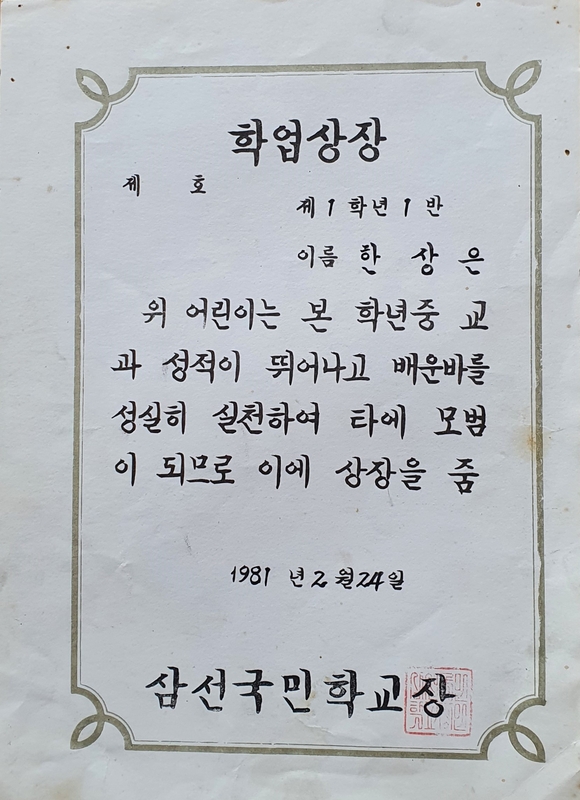 학업상장
제 호
제 1 학년 1 반
이름 한 상 은
위 어린이는 본 학년중 교
과 성적이 뛰어나고 배운바를
성실히 실천하여 타에 모범
이 되므로 이에 상장을 줌
1981 년 2 월 24 일
삼선국민학교장